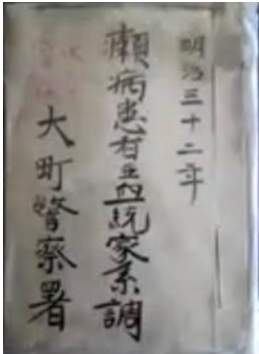 明治三十二年
癩病患者並血統家系調
大町警察署